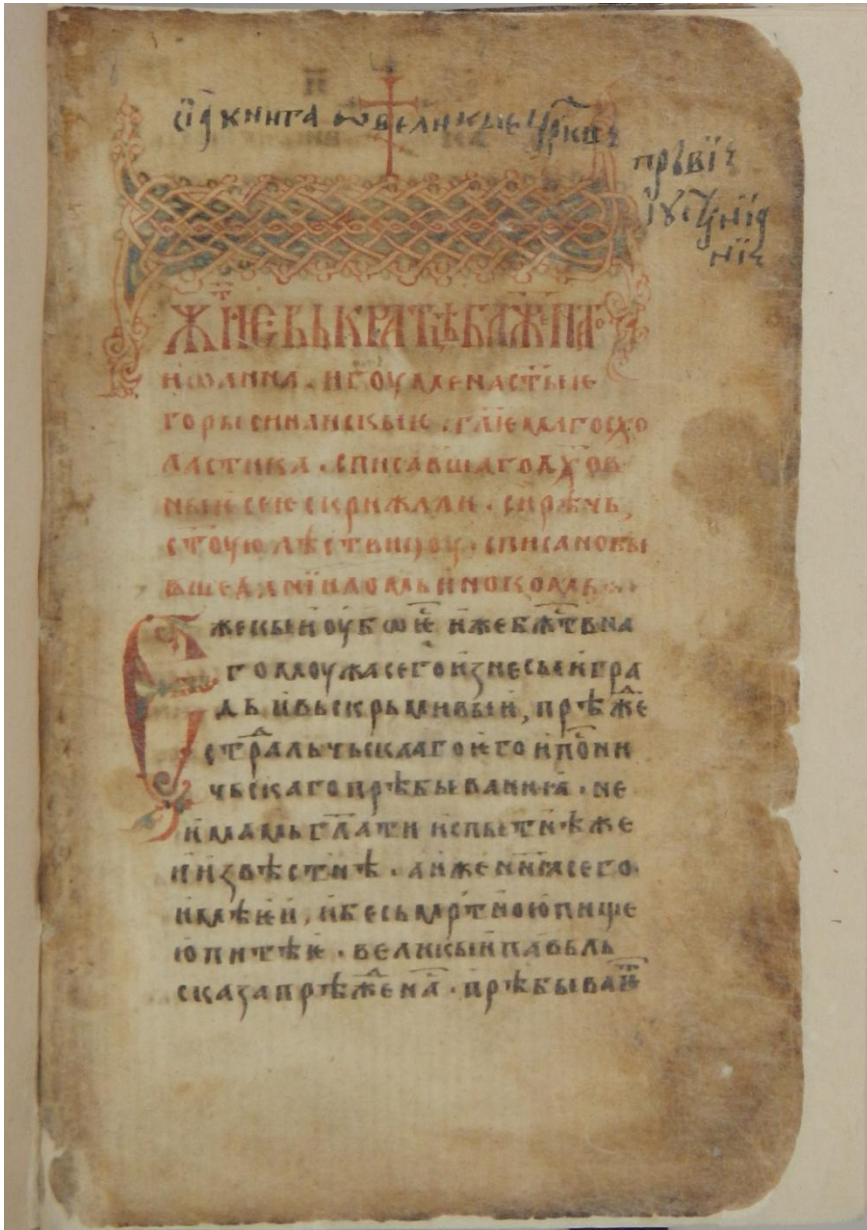 сїꙗ книга ѡ великые црⷦ҇ве
прьвїе
їꙋстїнїꙗ
нїе
Жиⷮ҇їе вькратцѣ блаженаⷢ҇
иѡанна. игоумена ст҃ые
горы синаискыѥ. гл҃ѥмаго схо
ластика. списавшаго дх҃ов
ныи сею скрижали. сирѣчь,
ст҃оую лѣствицоу. списано бы
вше данїиломь инокомь
Еже кыи оубѡ ѥⷭ҇ иже бжⷭ҇тьвна
го моужа сего изнесыи гра
дь и вьскрьмивыи, прѣжⷣе
страⷣальчьскааго ѥго и поⷣви
чьскаго прѣбываниꙗ. не
имамь гл҃ати испытнѣ же
и извѣстнѣ. а иже нн҃ꙗ сего
имѣѥи, и бесьмрт҃ною пище
ю питѣѥ. великыи павьль
сказа прѣжⷣе наⷭ҇. прѣбываѥⷮ